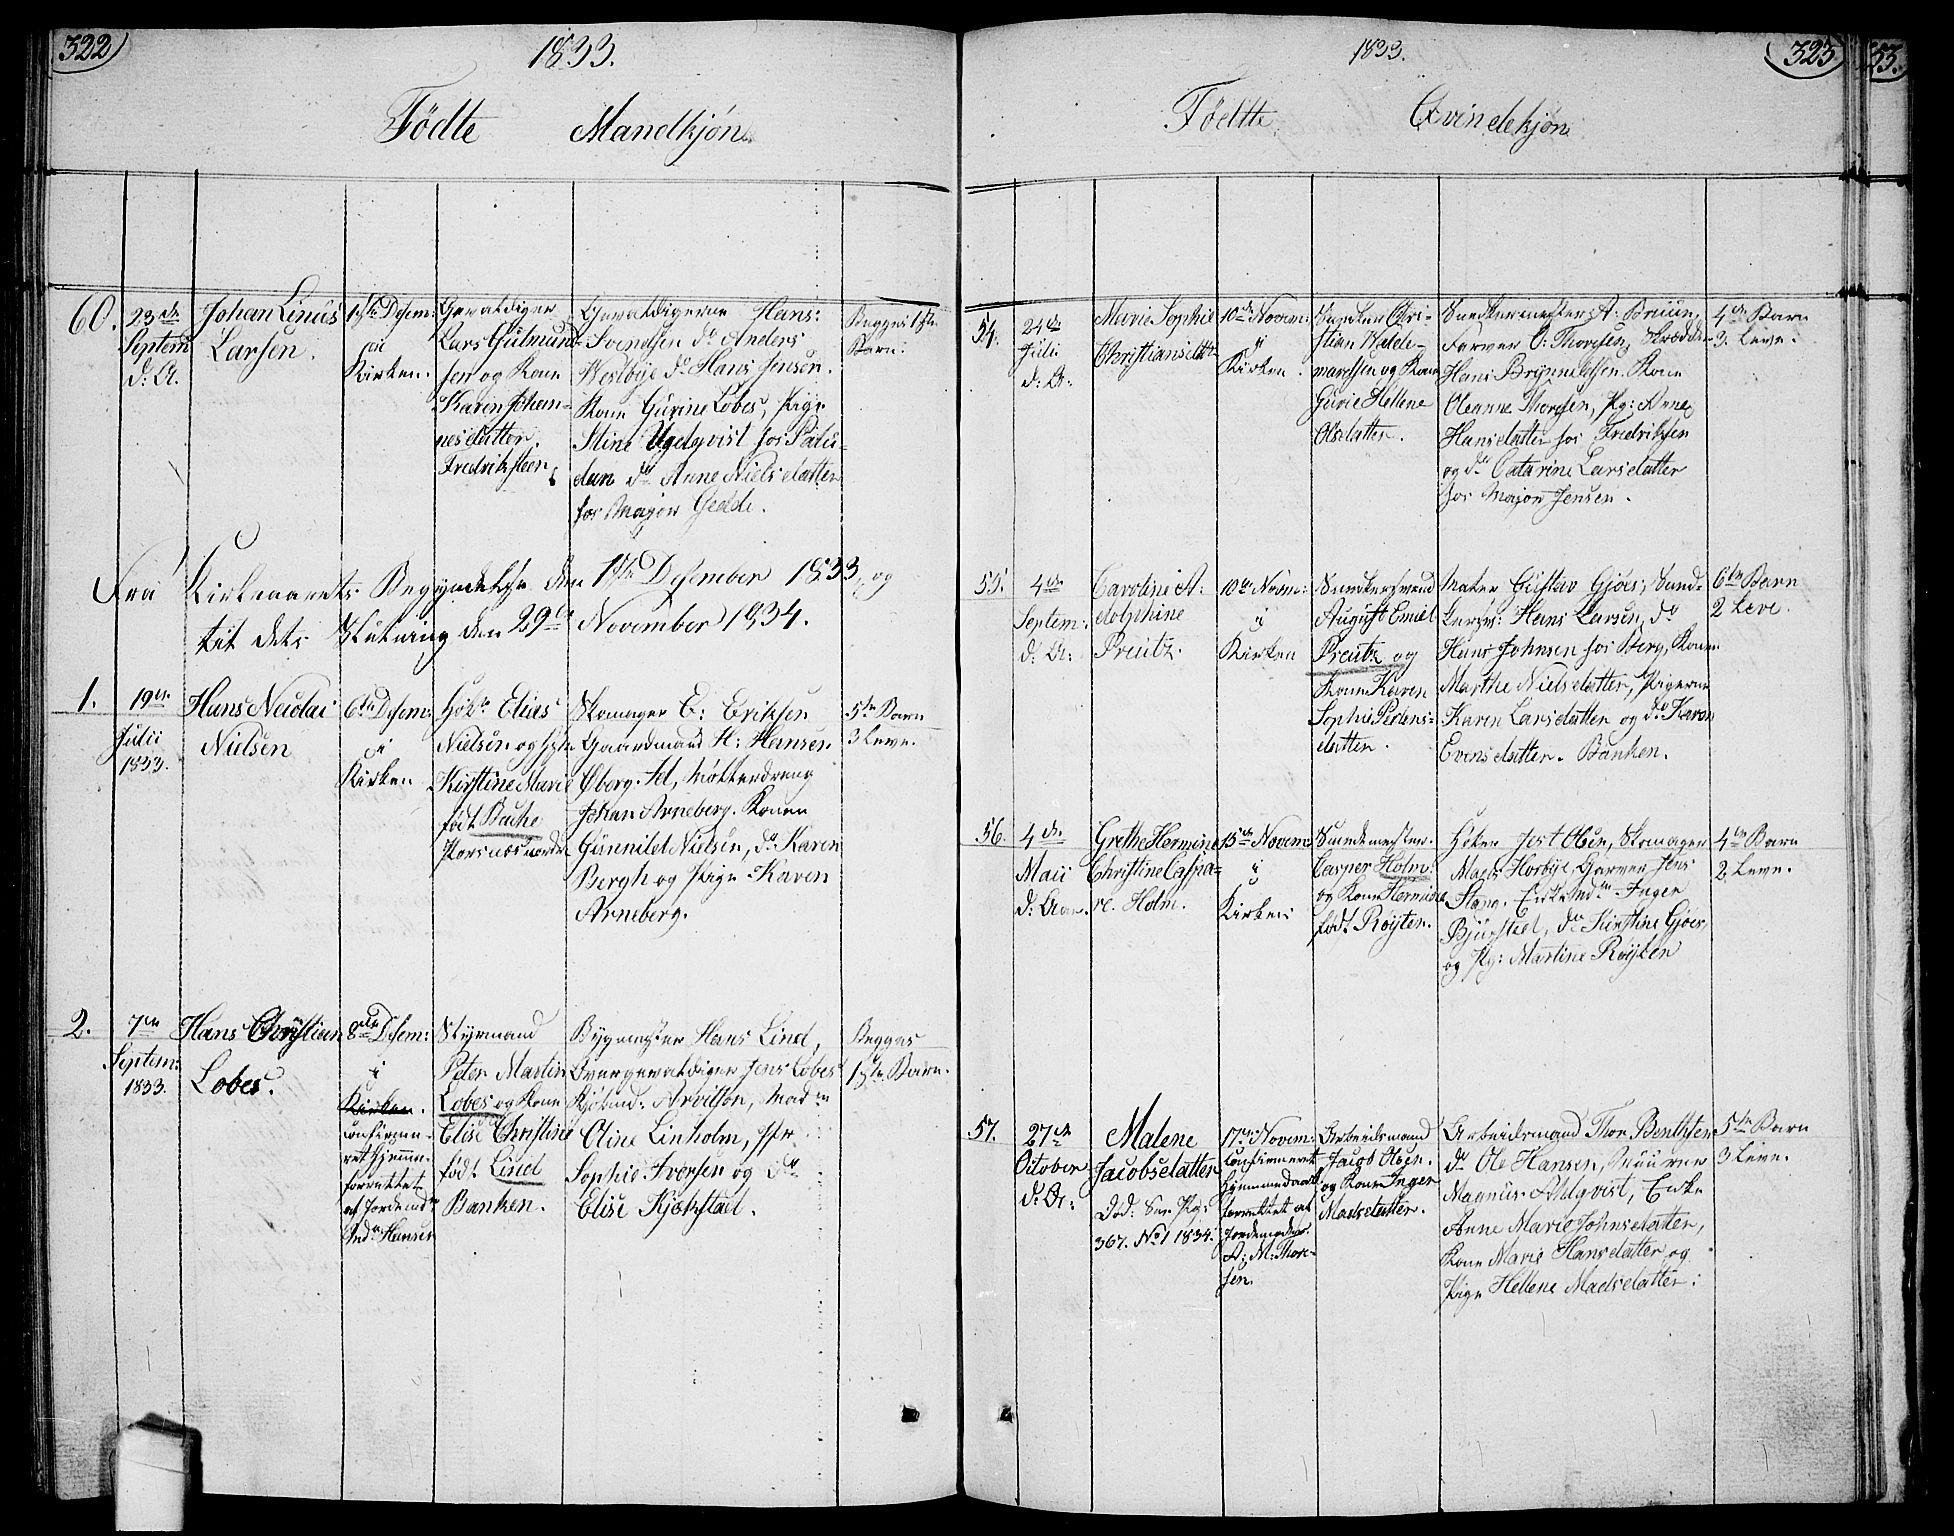 322
1833.
Födte Mandkjön
60.
23de
Septem
d: A.
Johan Linus
Larsen.
1ste Desem:
Kirken.
Gevaldiger
Lars Gulmund-
sen og Kone
Karen Johan-
nesdatter.
Fredriksteen
Gevaldigerne Hans:
Svendsen do Anders
Westbye do Hans Jensen.
Kone Gurine Lobes, Pige
Stine hos Palu-
dan do Anne Nielsdatter
hos Major Gedde.
Begges 1ste
Barn.
Fra Kirkeaarets Begyndelse den 1ste Desember 1833, og
til dets Slutning den 29de November 1834.
1.
19de
Julii
1833.
Hans Nicolai
Nielsen
6te Desem:
i
Kirken
Elias
Nielsen og
Kirstine Marie
född Bache
Skomager E: Eriksen
Gaardmand H: Hansen
Öberg. Møllerdreng
Johan Arneberg. Konen
Gunnild Nielsen, do Karen
Bergh og Pige Karen
Arneberg.
5te Barn
3 Leve.
2.
7de
Septem:
1833.
Hans Christian
Lobes.
8de Desem:
i
Kirken.
Confirme-
ret hjemme-
forrettet
af Jordemdr
Hansen
Styrmand
Peter Martin
Lobes og Kone
Elise Christine
født Lind
Banken.
Bygmester Hans Lind,
Overgevaldiger Jens Lobes
Kjøbmd: Arvitson, Madm
Oline Linholm, Jfr.
Sophie Iversen og do
Elise Kjøkstad.
Begges
1ste Barn.
1833.
323
53.
Födtte Qvindekjön
54.
24de
Julii
d: A:
Marie Sophie
Christiansdatter
10de Novem:
i
Kirken
Snedker Chri-
stian Walde-
marsen og Kone
Gurie Hellene
Olsdatter.
Snedkermester A: Bruun,
Farver O: Thoresen,
Hans Brynnildsen. Kone
Oleanne Thoresen, Pg: Anne
Hansdatter hos Fredriksen
og do Catarine Larsdatter
hos Major Jensen.
4de Barn
3. Leve.
55.
4de
Septem:
d: A:
Caroline A-
dolphine
Preutz.
10de Novem:
i
Kirken
Snedkersvend
August Emiel
Preutz og
Kone Karen
Sophie Pedens-
datter.
Maler Gustav Gjöes, Sned-
kersv: Hans Larsen, do
Hans Johnsen hos Berg, Konen
Marthe Nielsdatter, Pigerne
Karen Larsdatter og do Karen
Evensdatter. Banken.
6te Barn
2 Leve.
56.
4de
Maii
d: Aar.
Grethe Hermine
Christine Caspa-
re. Holm.
15de Novem:
i
Kirken
Smedmester
Casper Holm
og Kone Hermine
født Röisten.
Höker Jost Olsen, Skomager
Mads Horbye, Garver Jens
Stang. Inger
Bjurstad, do Kirstine Gjöes,
og Pg: Martine Röisten
4de Barn
2 Leve.
57.
27de
October
d: A:
Malene
Jacobsdatter
Död: See Pg:
367. No 1 1834.
17de Novem:
Confirmeret
hjemmedaab
forrettet af
Jordemoder
A: M: Thore-
sen.
Arbeidsmand
Jacob Olsen.
og Kone Inger
Madsdatter.
Arbeidsmand Thor Benthsen
do Ole Hansen, Muurer
Magnus Ahlqvist, Enke
Anne Marie Johnsdatter,
Kone Marie Hansdatter og
Pige Hellene Madsdatter.
5te Barn
3 Leve.